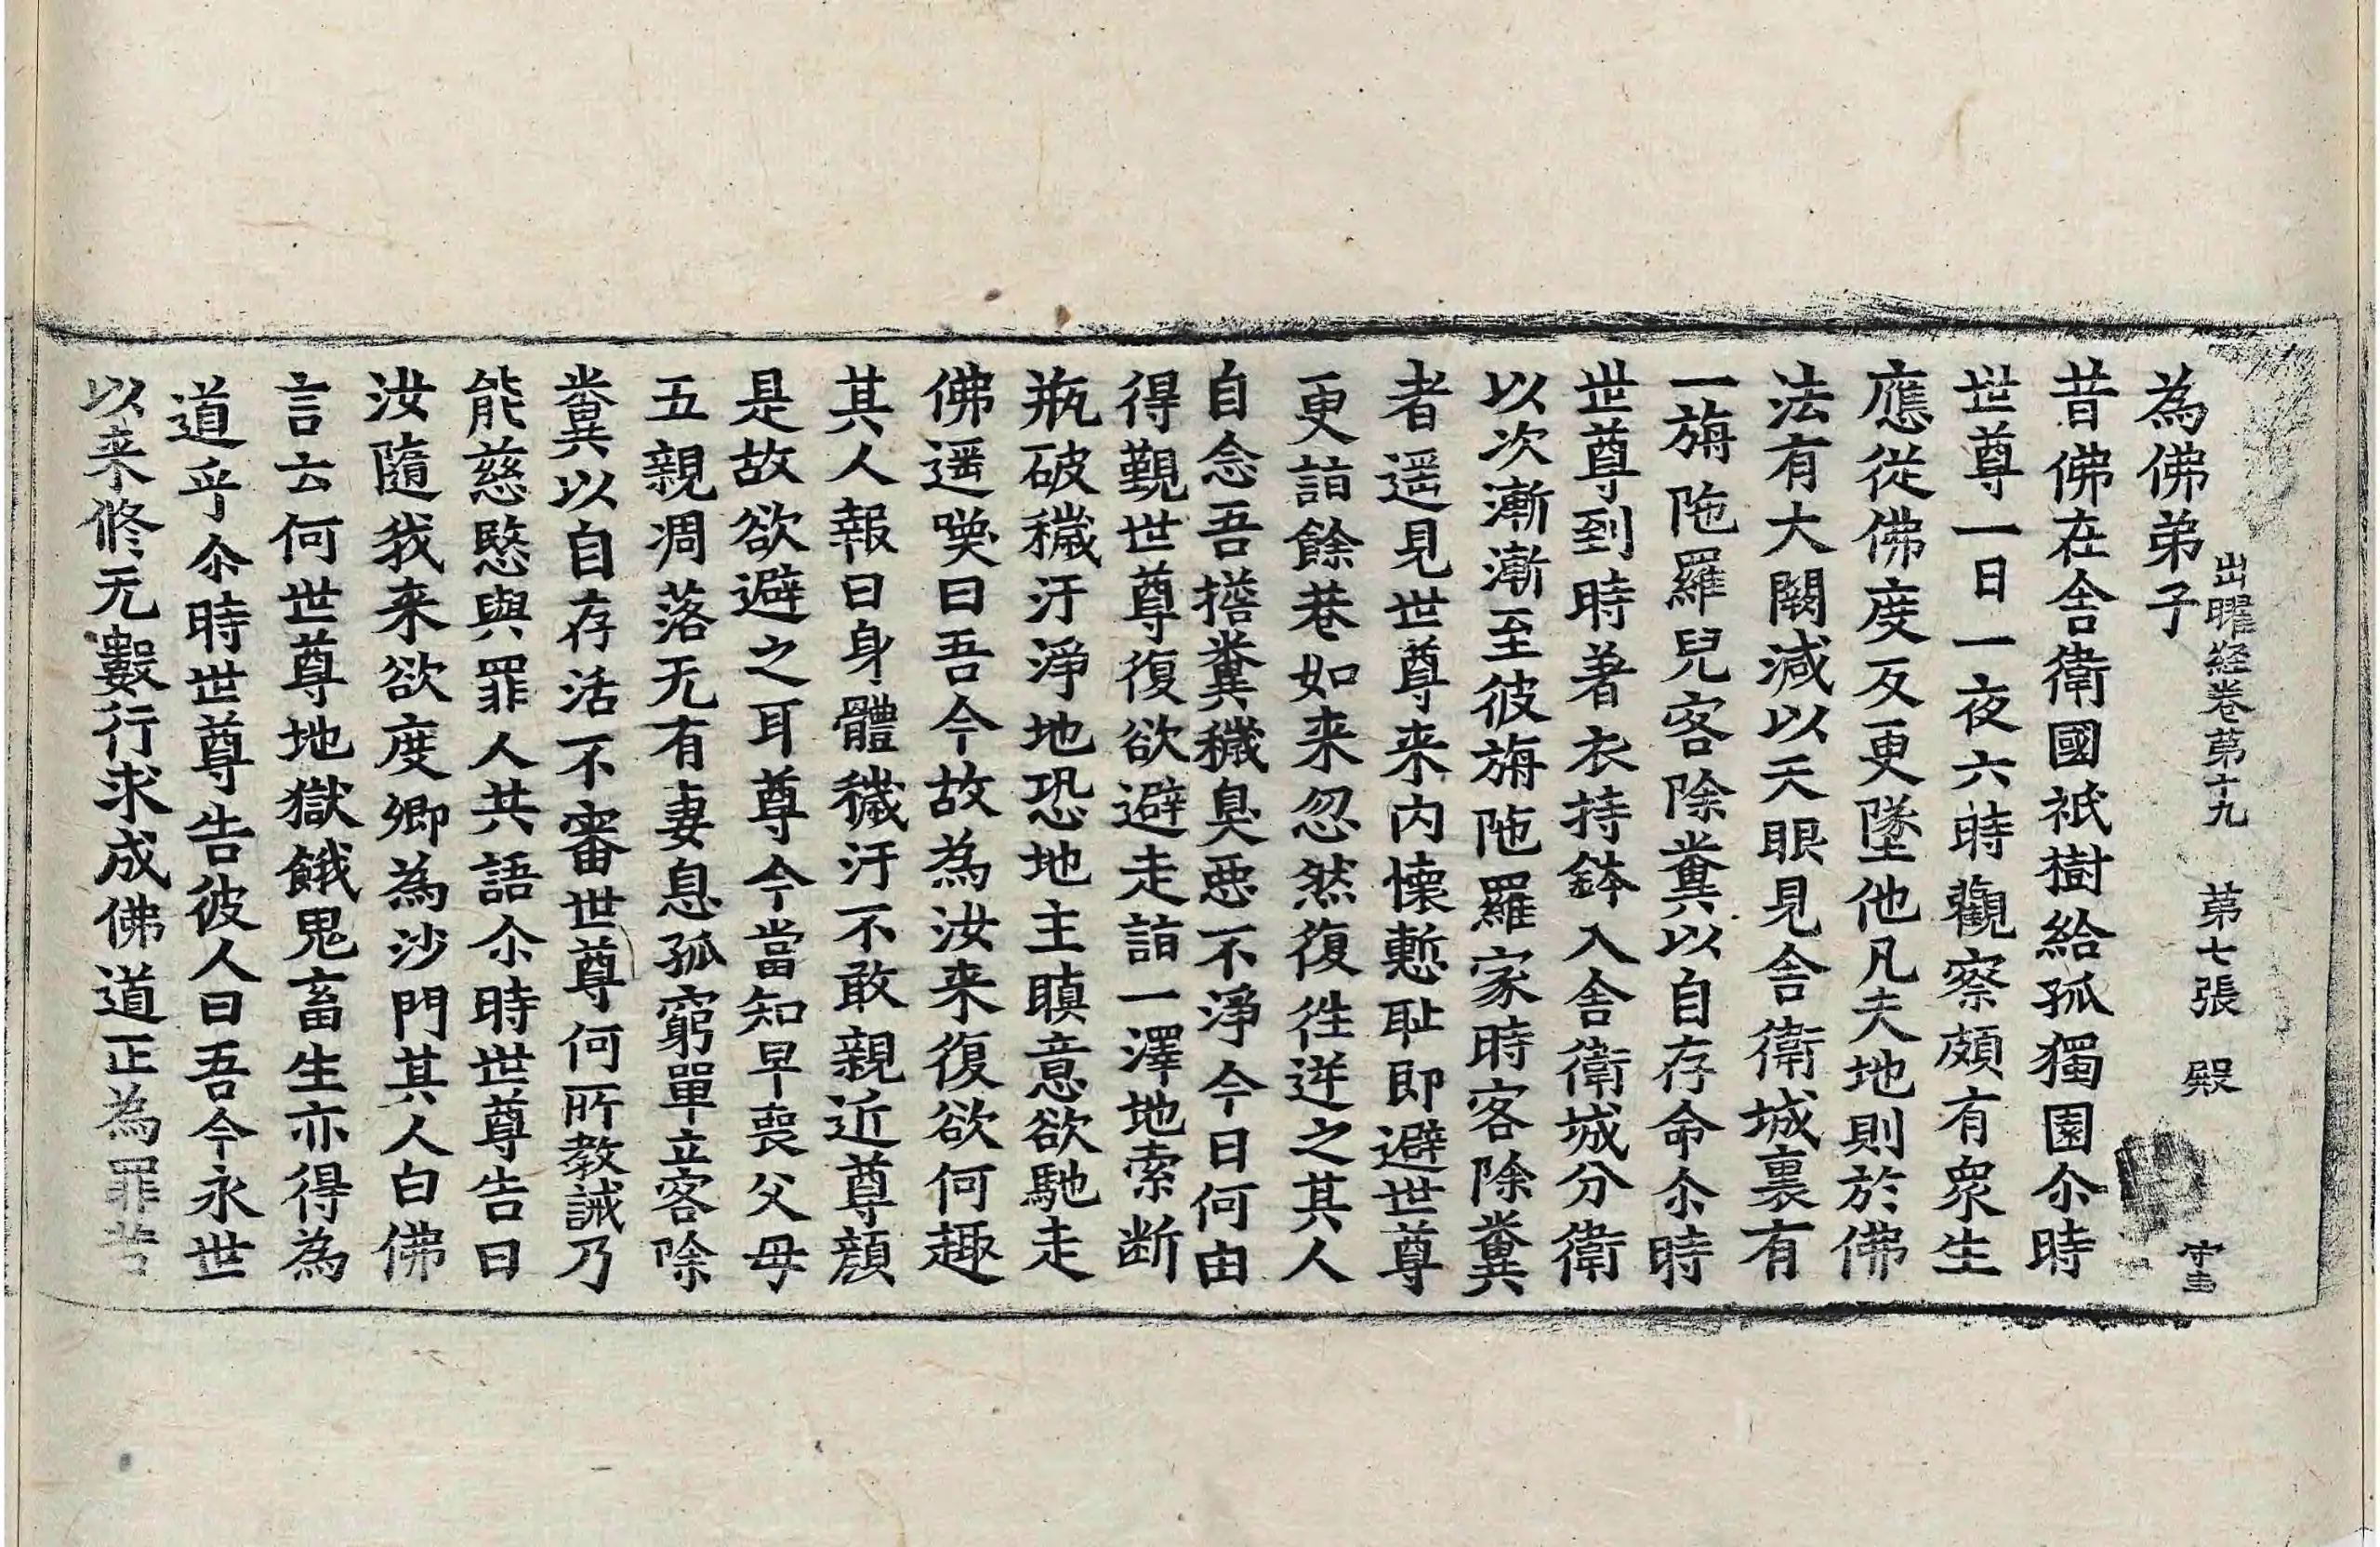 出曜経巻苐十九　苐七張　殿
為佛弟子
昔佛在舍衛國祇樹給孤獨園尒時
世尊一日一夜六時觀察頗有眾生
應從佛度反更墜他凡夫地則於佛
法有大闕減以天眼見舍衛城裏有
一旃陁羅兒客除糞以自存命尒時
世尊到時著衣持鉢入舍衛城分衛
以次漸漸至彼旃陁羅家時客除糞
者遥見世尊来内懐慙耻即避世尊
更詣餘巷如来忽然復徃逆之其人
自念吾擔糞穢臭惡不淨今日何由
得覲世尊復欲避走詣一澤地索断
瓶破穢汙淨地恐地主瞋意欲馳走
佛遥喚曰吾今故為汝来復欲何趣
其人報曰身體穢汙不敢親近尊顔
是故欲避之耳尊今當知早喪父母
五親凋落无有妻息孤窮單立客除
糞以自存活不審世尊何所教誡乃
能慈愍與罪人共語尒時世尊告曰
汝隨我来欲度卿為沙門其人白佛
言云何世尊地獄餓鬼畜生亦得為
道乎尒時世尊告彼人曰吾今永世
以来修无數行求成佛道正為罪苦